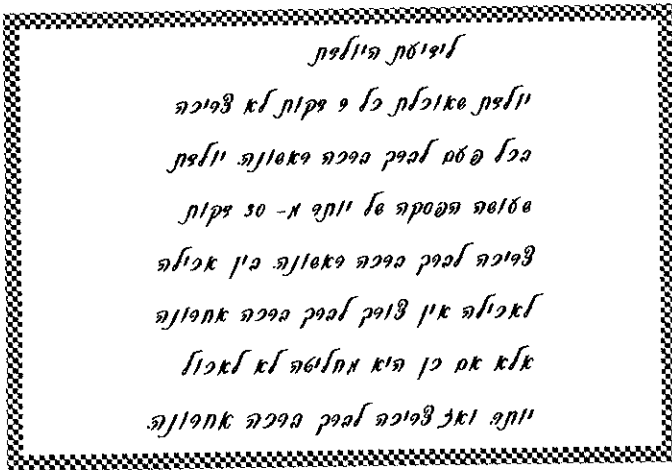 לידיעת היולדת
יולדת שאוכלת כל 9 דקות לא צריכה
בכל פעם לברך ברכה ראשונה. יולדת
שעושה הפסקה של יותר מ- 30 דקות
צריכה לברך ברכה ראשונה. בין אכילה
לאכילה אין צורך לברך ברכה אחרונה
אלא אם כן היא מחליטה לא לאכול
יותר. ואז צריכה לברך ברכה אחרונה.